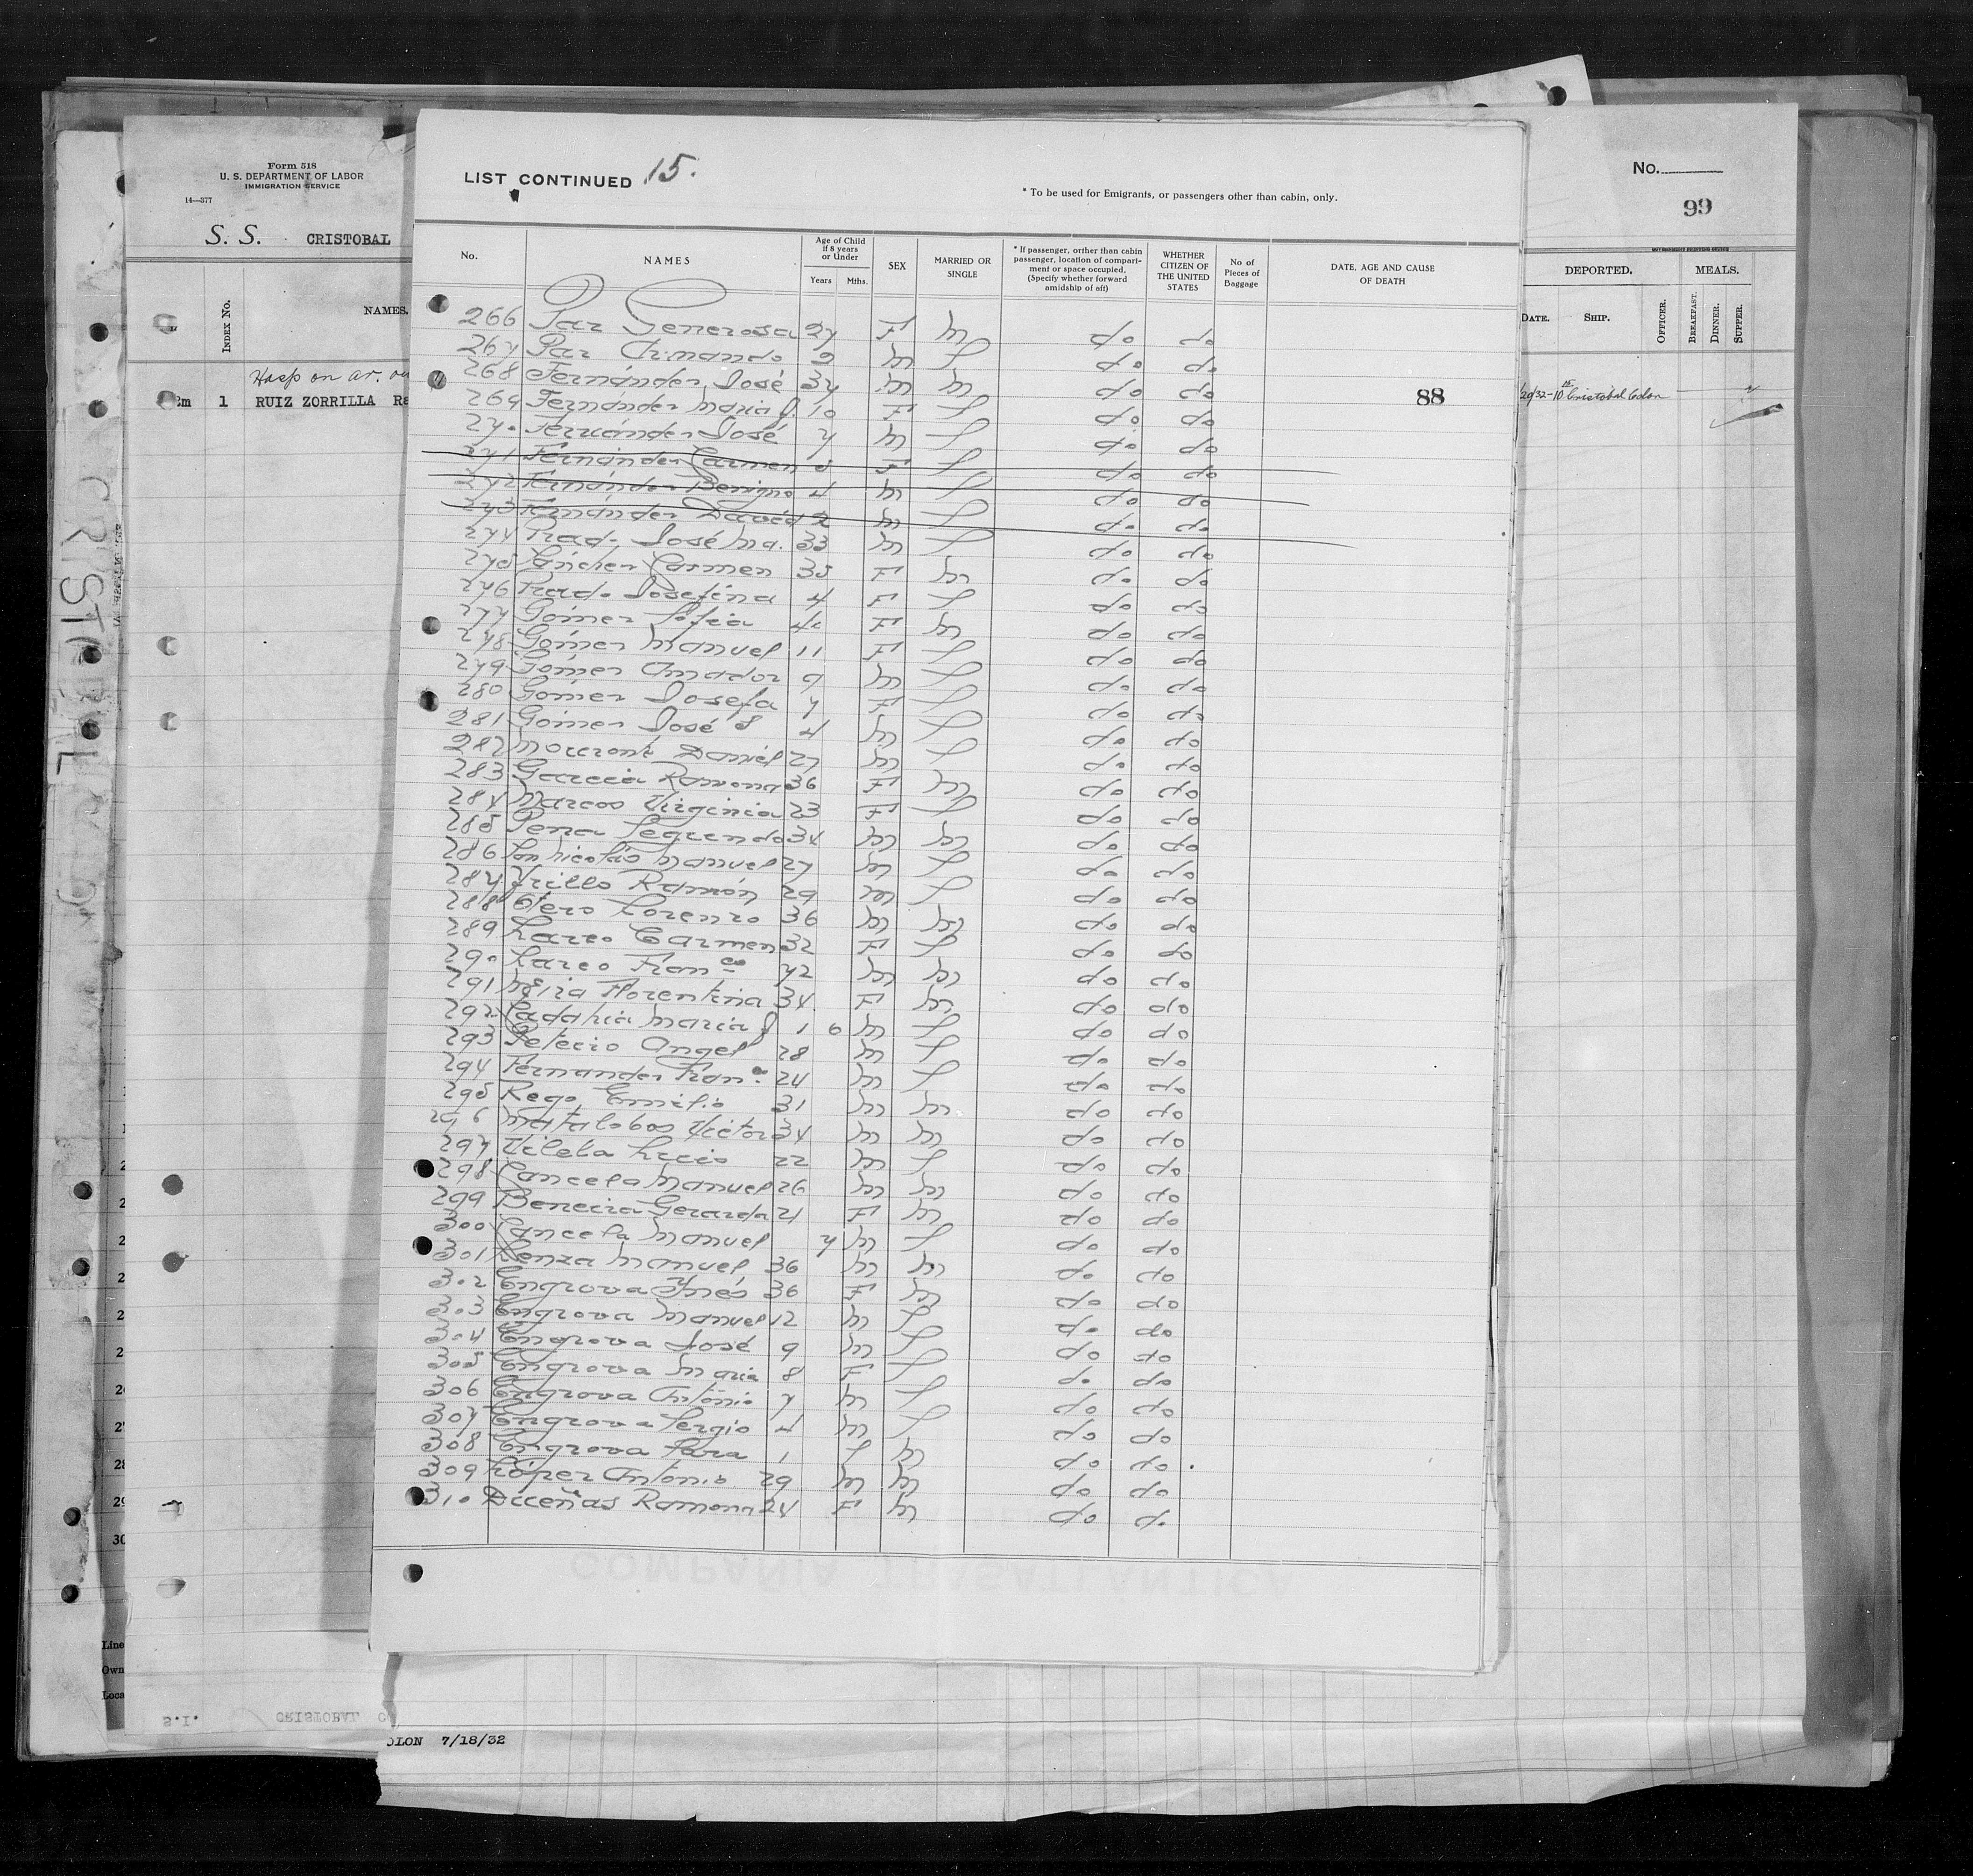 Form 518
U. S. DEPARTMENT OF LABOR
IMMIGRATION SERVICE
14—377
S. S. CRISTOBAL
INDEX No.
NAMES.
Hosp on ar.
2m 1 RUIZ ZORRILLA Ra
LIST CONTINUED 15.
* To be used for Emigrants, or passengers other than cabin, only.
No.
NAMES
Age of Child if 8 years or Under
Years Mths.
SEX
MARRIED OR SINGLE
* If passenger, orther than cabin passenger, location of compartiment or space occupied. (Specify whether forward amidship of aft)
WHETHER CITIZEN OF THE UNITED STATES
No of Pieces of Baggage
DATE, AGE AND CAUSE OF DEATH
266 Paz Generosa 27 F M do do
267 Paz Armando 2 M S do do
268 Fernández José 37 M M do do
88
269 Fernández Maria J. 10 F S do do
270 Fernández José 7 M S do do
271 Fernández Carmen 5 F S do do
272 Fernández Benigno 4 M S do do
273 Fernández David 2 M S do do
274 Prado José Ma. 33 M S do do
275 Sánchez Carmen 35 F M do do
276 Prado Josefina 4 F S do do
277 Gómez Sofia 40 F M do do
278 Gómez Manuel 11 F S do do
279 Gómez Amador 9 M S do do
280 Gómez Josefa 7 F S do do
281 Gómez José S 4 M S do do
282 Daniel 27 M S do do
283 Garcia Ramona 36 F M do do
284 Marcos Virginia 23 F S do do
285 Pena Segundo 34 M M do do
286 San Nicolás Manuel 27 M S do do
287 Ramón 29 M S do do
288 Otero Lorenzo 36 M M do do
289 Lareo Carmen 32 F S do do
290 Lareo Franco 42 M M do do
291 Neira Florentina 34 F M do do
292 Cadahia Maria J 1 6 M S do do
293 Petecio Angel 28 M S do do
294 Fernandez Franco 24 M S do do
295 Rego Emilio 31 M M do do
296 Matalobos Victor 34 M M do do
297 Vilela Lucio 22 M S do do
298 Cancela Manuel 26 M M do do
299 Gerarda 21 F M do do
300 Cancela Manuel 7 M S do do
301 Lenza Manuel 36 M M do do
302 Engrova Ynés 36 F M do do
303 Engrova Manuel 12 M S do do
304 Engrova José 9 M S do do
305 Engrova Maria 8 F S do do
306 Engrova António 7 M S do do
307 Engrova Sergio 4 M S do do
308 Engrova Sara 1 S M do do
309 López Antonio 29 M M do do
310 Dueñas Ramona 24 F M do do
COMPAÑIA TRASATLANTICA
No.
99
DEPORTED.
MEALS.
DATE. SHIP. OFFICER. BREAKFAST. DINNER. SUPPER.
Cristobal Colon
29
30
Line
Own
Loca
S.I. CRISTOBAL CO
OLON 7/18/32
CRISTOBAL